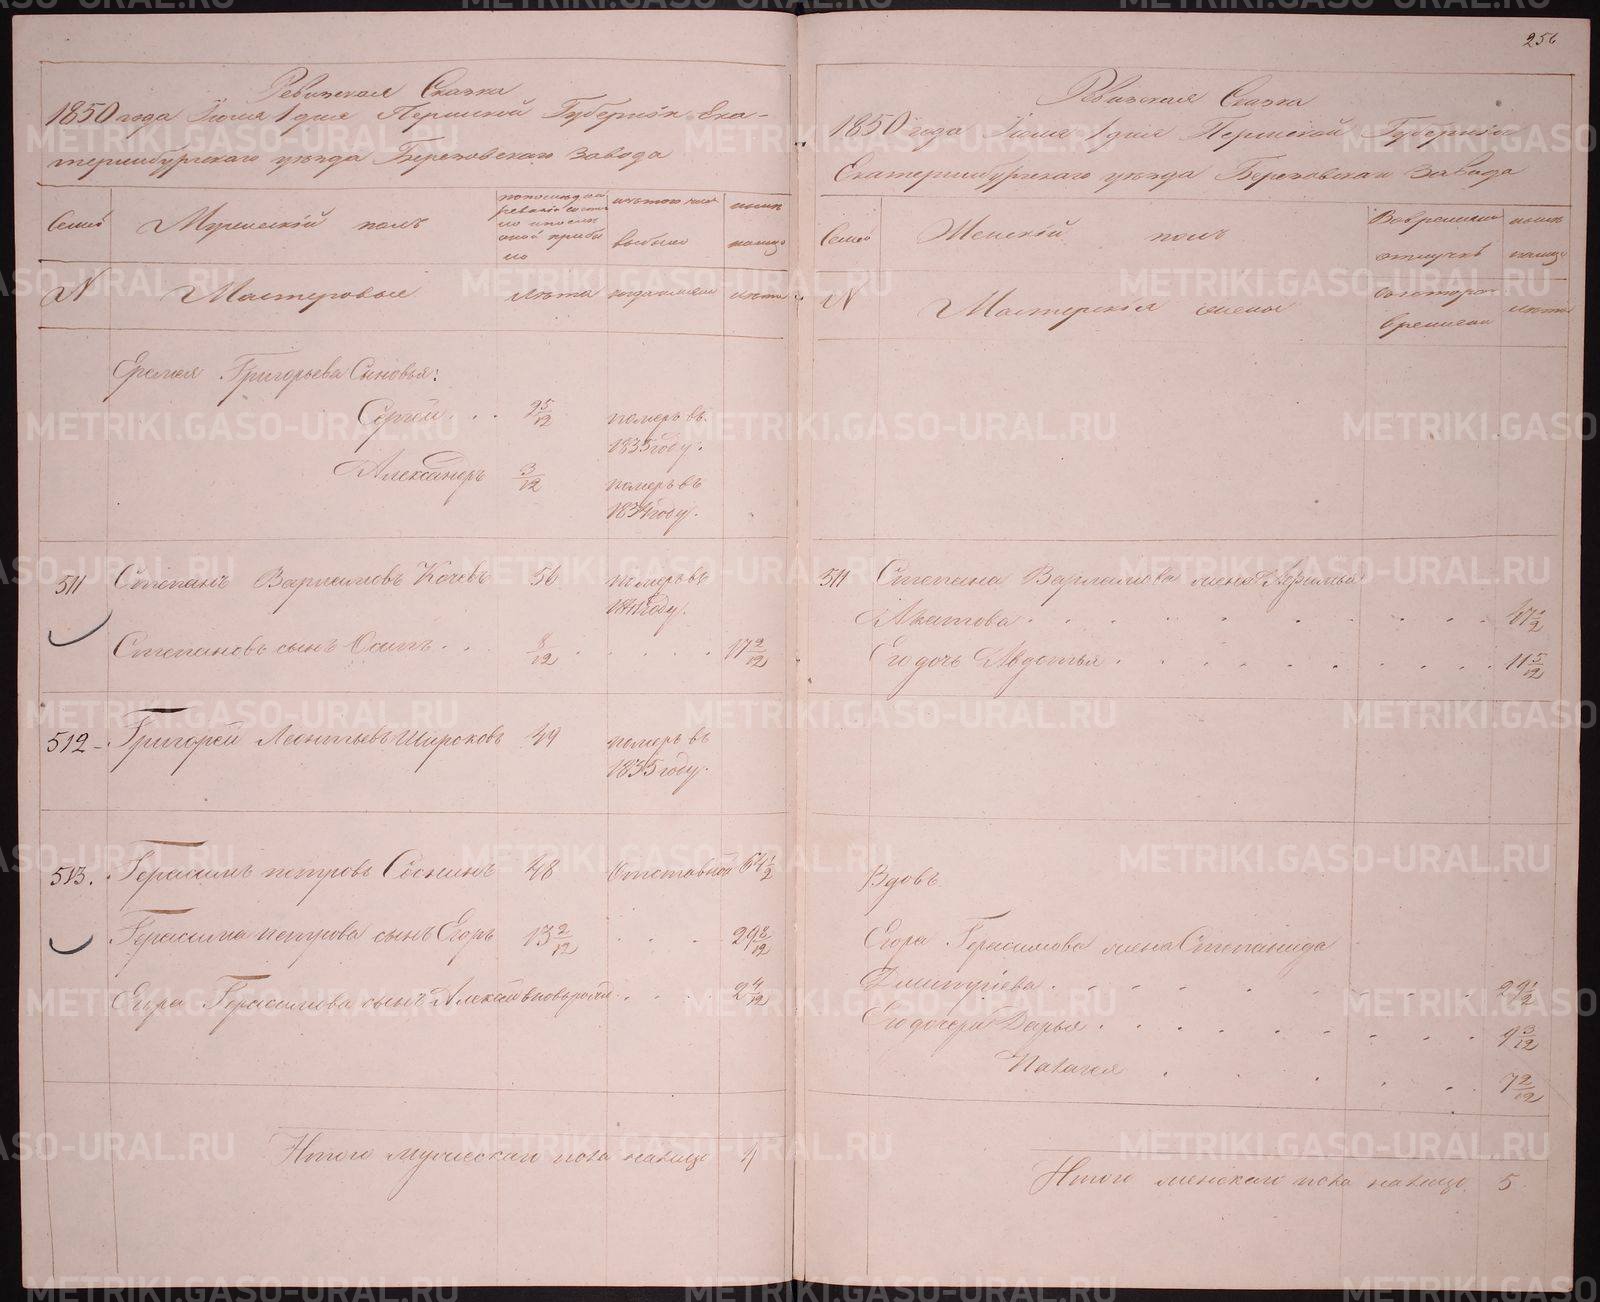 256
Ревизская Сказка
1850 года Июня 1 дня Пермской Губернiи Ека-
теринбургскаго уѣзда Березовскаго завода
Семьи
Мужескiй полъ
по последней
ревизiи состоя
ло и после
оной прибы
ло
изъ того числа
выбыло
нынѣ
налицо
N
Мастеровые
Лѣта
когда именно
лѣта
Еремея Григорьева Сыновья:
Сергей . . 9 5/12 померъ въ
1835 году.
Александръ 3/12 померъ въ
1834 году.
511 Степанъ Варламовъ Кочевъ 56 померъ въ
1841 году.
Степановъ сынъ Осипъ . . 8/12 . . . . . 17 2/12
512 - Григорей Леонтьевъ Широковъ 49 померъ въ
1835 году.
513. Герасимъ петровъ Соснинъ 48 Отставной 64 1/2
Герасима петрова сынъ Егоръ 13 2/12 . . . 29 8/12
Егора Герасимова сынъ Алексей вновьрожд . . . . 2 4/12
Итого мужескаго пола налицо 4
Ревизская Сказка
1850 года Июня 1 дня Пермской Губернiи
Екатеринбургскаго уѣзда Березовскаго завода
Семьи
Женскiй полъ
Вовременной
отлучкѣ
нынѣ
налицо
N
Мастерскiя жены
Съкотораго
времени
лѣта
511 Степана Варламова жена Афимья
Акатова . . . . . . . . . 47 1/2
Его дочь Авдотья . . . . . . . . . 11 5/12
Вдовъ
Егора Герасимова жена Степанида
Дмитрiева . . . . . . . . . 29 1/2
Его дочери Дарья . . . . . . . . . 9 3/12
Палагея . . . . . . 7 2/12
Итого женскаго пола налицо 5
METRIKI.GASO-URAL.RU